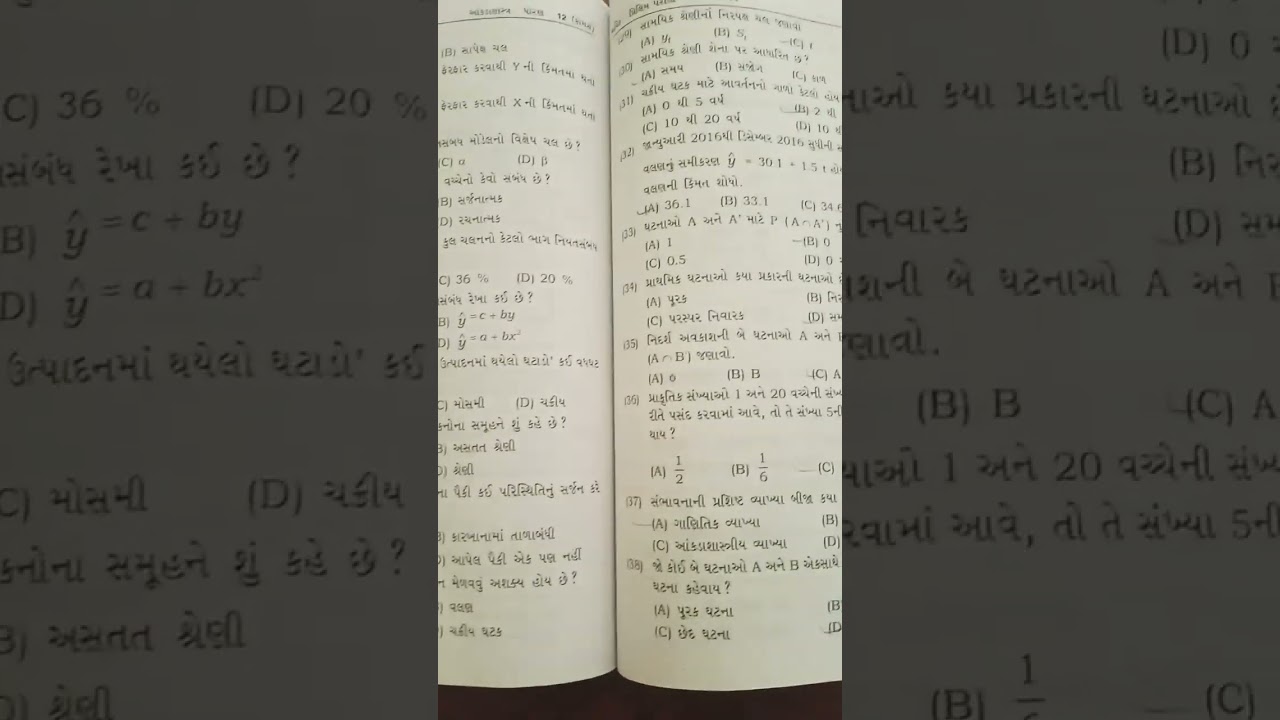 આંકડાશાસ્ત્ર ધોરણ 12 (કોમર્સ)
(B) સાપેક્ષ ચલ
ફેરફાર કરવાથી Y ની કિંમતમાં થતો
ફેરફાર કરવાથી X ની કિંમતમાં થતો
સંબંધ મોડેલનો વિક્ષેપ ચલ છે?
(C) α (D) β
વચ્ચેનો કેવો સંબંધ છે?
(B) સર્જનાત્મક
(D) રચનાત્મક
કુલ ચલનનો કેટલો ભાગ નિયતસંબંધ
C) 36 % (D) 20 %
સંબંધ રેખા કઈ છે?
B) ŷ = c + by
D) ŷ = a + bx²
ઉત્પાદનમાં થયેલો ઘટાડો' કઈ વધઘટ
C) મોસમી (D) ચક્રીય
કનોના સમૂહને શું કહે છે?
B) અસતત શ્રેણી
D) શ્રેણી
ના પૈકી કઈ પરિસ્થિતિનું સર્જન કરે
B) કારખાનામાં તાળાબંધી
D) આપેલ પૈકી એક પણ નહીં
ન મેળવવું અશક્ય હોય છે?
) વલણ
) ચક્રીય ઘટક
(29) સામયિક શ્રેણીનો નિરપેક્ષ ચલ જણાવો
(A) yₜ (B) Sₜ (C) t
(30) સામયિક શ્રેણી શેના પર આધારિત છે?
(A) સમય (B) સંજોગ (C) કાળ
(31) ચક્રીય ઘટક માટે આવર્તનનો ગાળો કેટલો હોય
(A) 0 થી 5 વર્ષ (B) 2 થી
(C) 10 થી 20 વર્ષ (D) 10 થી
(32) જાન્યુઆરી 2016થી ડિસેમ્બર 2016 સુધીની
વલણનું સમીકરણ ŷ = 30.1 + 1.5 t
વલણની કિંમત શોધો.
(A) 36.1 (B) 33.1 (C) 34.6
(33) ઘટનાઓ A અને A' માટે P (A ∩ A')
(A) 1 (B) 0
(C) 0.5 (D) 0
(34) પ્રાથમિક ઘટનાઓ કયા પ્રકારની ઘટનાઓ
(A) પૂરક (B)
(C) પરસ્પર નિવારક (D) સમ
(35) નિદર્શ અવકાશની બે ઘટનાઓ A અને
(A ∩ B) જણાવો.
(A) 0 (B) B (C) A
(36) પ્રાકૃતિક સંખ્યાઓ 1 અને 20 વચ્ચેની
રીતે પસંદ કરવામાં આવે, તો તે સંખ્યા 5ની
થાય?
(A) 1/2 (B) 1/6 (C)
(37) સંભાવનાની પ્રશિષ્ટ વ્યાખ્યા બીજા કયા
(A) ગાણિતિક વ્યાખ્યા (B)
(C) આંકડાશાસ્ત્રીય વ્યાખ્યા (D)
(38) જો કોઈ બે ઘટનાઓ A અને B એકસાથે
ઘટના કહેવાય?
(A) પૂરક ઘટના (B)
(C) છેદ ઘટના (D)